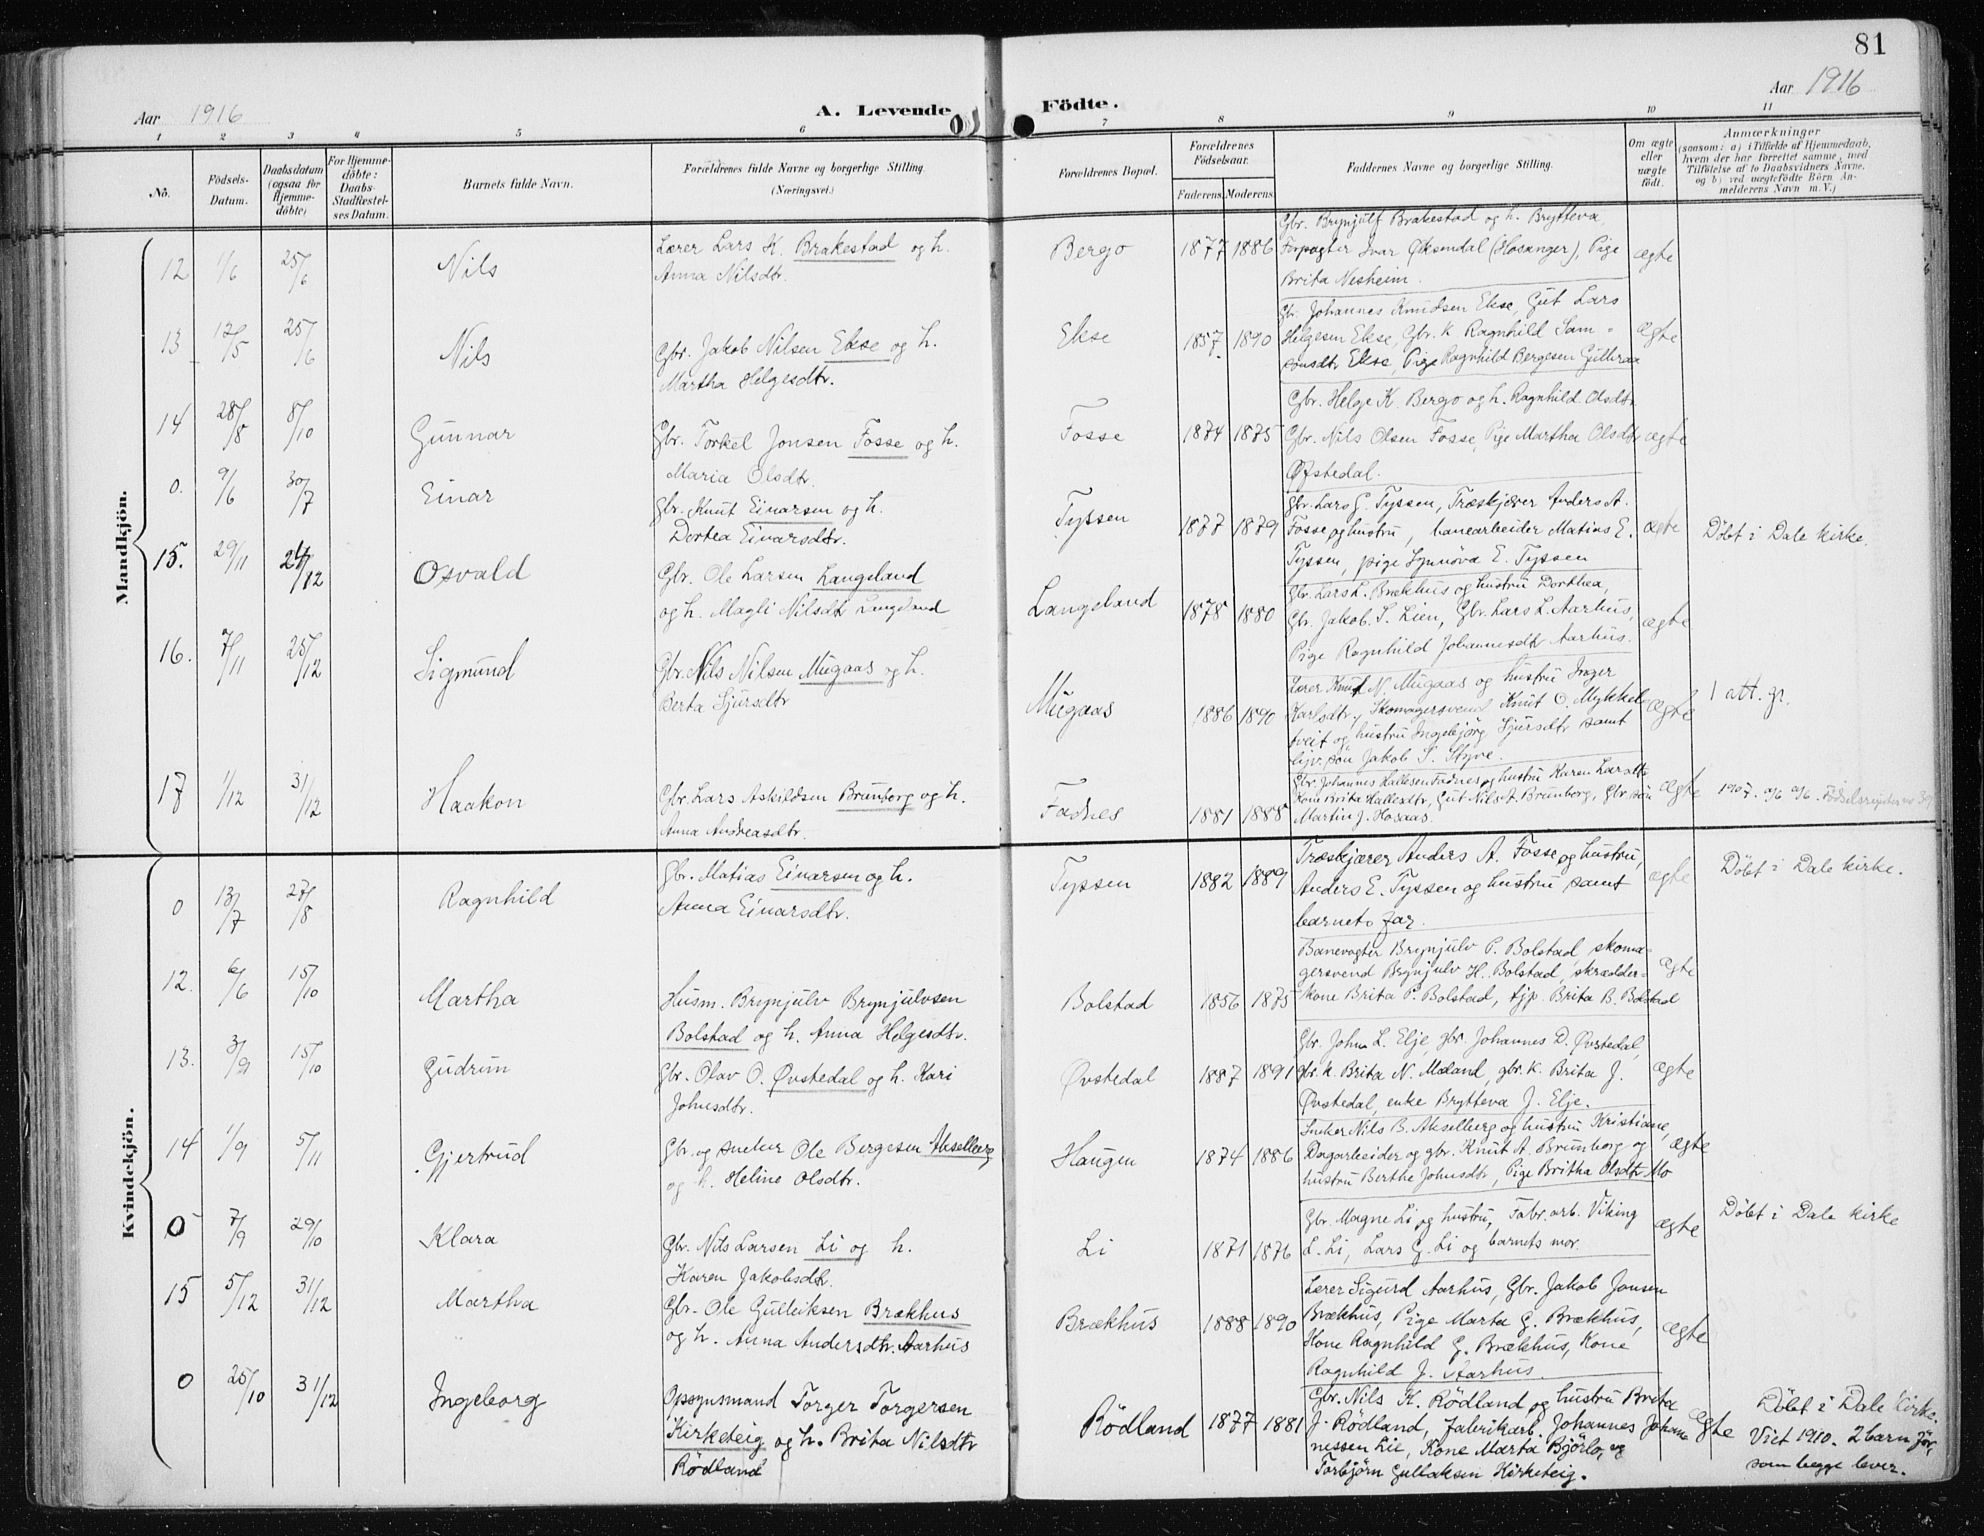 81
Aar 1916
A. Levende
Födte.
Aar 1916
1 2 3 4 5 6 7 8 9 10 11
No.
Födsels-
Datum.
Daabsdatum
(ogsaa for
Hjemme-
döbte)
For Hjemme-
döbte:
Daabs-
Stadfæstel-
ses Datum.
Barnets fulde Navn.
Forældrenes fulde Navne og borgerlige Stilling.
(Næringsvei.)
Forældrenes Bopæl.
Forældrenes
Födselsaar.
Faderens. Moderens.
Faddernes Navne og borgerlige Stilling.
Om ægte
eller
uægte
födt.
Anmærkninger
(saasom: a) i Tilfælde af Hjemmedaab,
hvem der har forrettet samme, med
Tilföielse af to Daabsvidners Navne,
og b) ved uægtefödte Börn An-
melderens Navn m. V.)
Mandkjön.
12 1/6 25/6 Nils
Lærer Lars K. Brakestad og h.
Anna Nilsdtr.
Bergo 1877 1886
Gbr. Brynjulf Brakestad og h. Brytteva,
Forpagter Ivar Øksendal (Hosanger), Pige
Brita Nesheim.
ægte
13 12/5 25/6 Nils
Gbr. Jakob Nilsen Ekse og h.
Martha Helgesdtr.
Ekse 1857 1890
Gbr. Johannes Knudsen Ekse, Gut Lars
Helgesen Ekse, Gbr. k. Ragnhild Sam-
sonsdtr Ekse, Pige Ragnhild Bergesen Gullbraa
ægte
14 28/8 8/10 Gunnar
Gbr. Torkel Jonsen Fosse og h.
Maria Olsdtr.
Fosse 1874 1875
Gbr. Helge K. Bergo og h. Ragnhild Olsdtr
Gbr. Nils Olsen Fosse, Pige Martha Olsdtr
Øfstedal.
ægte
0. 9/6 30/7 Einar
Gbr. Knut Einarsen og h.
Dortea Einarsdtr.
Tyssen 1877 1879
Gbr. Lars G. Tyssen, Træskjærer Anders A.
Fosse og hustru, banearbeider Matias E.
Tyssen, pige Synnöva E. Tyssen
ægte
Döbt i Dale kirke.
15. 29/11 /12 Osvald
Gbr. Ole Larsen Langeland
og h. Magli Nilsdtr Langeland
Langeland 1878 1880
Gbr. Lars L. Brækhus og hustru Dorthea,
Gbr. Jakob S. Lien, Gbr. Lars L. Aarhus,
Pige Ragnhild Johannesdtr Aarhus.
ægte
16. 7/11 25/12 Sigmund
Gbr. Nils Nilsen Mugaas og h.
Berta Sjursdtr
Mugaas 1886 1890
Lærer Knut N. Mugaas og hustru Inger
Karlsdtr, Skomagersvend Knut O. Mykkel-
tveit og hustru Ingebjörg Sjursdtr samt
Gbr. sön Jakob S. Styve.
ægte
1 att. gr.
17 1/12 31/12 Haakon
Gbr. Lars Askildsen Brunborg og h.
Anna Andreasdtr.
Fadnes 1881 1888
Gbr. Johannes Hallesen Fadnes og hustru Karen Larsdtr
Kone Brita Hallesdtr, Gut Nils A. Brunborg, Gbr. sön
Martin J. Hosaas.
ægte
Kvindekjön.
0 13/7 27/8 Ragnhild
Gbr. Matias Einarsen og h.
Anna Einarsdtr.
Tyssen 1882 1889
Træskjærer Anders A. Fosse og hustru,
Anders E. Tyssen og hustru samt
barnets far.
ægte
Döbt i Dale kirke.
12. 6/6 15/10 Martha
Husm. Brynjulv Brynjulvsen
Bolstad og h. Anna Helgesdtr.
Bolstad 1856 1875
Banevogter Brynjulv P. Bolstad, skoma-
gersvend Brynjulv H. Bolstad, skrædder-
kone Brita P. Bolstad, tjp. Brita B. Bolstad
ægte
13. 3/9 15/10 Gudrun
Gbr. Olav O. Øvstedal og h. Kari
Johnsdtr.
Øvstedal 1887 1891
Gbr. John L. Elje, gbr. Johannes D. Øvstedal,
gbr. k. Brita N. Mæland, gbr. k. Brita J.
Øvstedal, enke Brytteva J. Elje.
ægte
14 1/9 5/11 Gjertrud
Gbr. og snekker Ole Bergesen Akselberg
og h. Heline Olsdtr.
Haugen 1874 1886
Snekker Nils B. Akselberg og hustru Kristiane,
Dagarbeider og gbr. Knut A. Brunborg og
hustru Berthe Johnsdtr, Pige Britha Olsdtr Mo
ægte
0 7/9 29/10 Klara
Gbr. Nils Larsen Li og h.
Karen Jakobsdtr.
Li 1871 1876
Gbr. Magne Li og hustru, Fabr. arb. Viking
L. Li, Lars G. Li og barnets mor.
ægte
Döbt i Dale kirke
15 5/12 31/12 Martha
Gbr. Ole Gulleiksen Brækhus
og h. Anna Andersdtr. Aarhus
Brækhus 1888 1890
Lærer Sigurd Aarhus, Gbr. Jakob Jonsen
Brækhus, Pige Marta G. Brækhus,
Kone Ragnhild G. Brækhus, Kone
Ragnhild J. Aarhus.
ægte
0 25/10 31/12 Ingeborg
Opsynsmand Torger Torgersen
Kirketeig og h. Brita Nilsdtr
Rödland
Rödland 1877 1881
Gbr. Nils K. Rödland og hustru Brita
J. Rödland, Fabrikarb. Johannes Johan-
nessen Lie, Kone Marta Björlo, og
Torbjörn Gullaksen Kirketeig.
ægte
Döbt i Dale kirke.
Viet 1910. 2 barn för,
som begge lever.